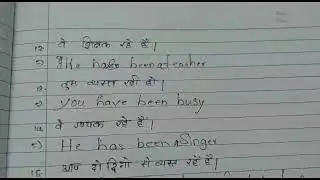 12. वे शिक्षक रहे हैं।
He has been a teacher
13. तुम व्यस्त रहे हो।
you have been busy
14. वे गायक रहे हैं।
He has been a Singer
15. आप दो दिनों से व्यस्त रहे हैं।